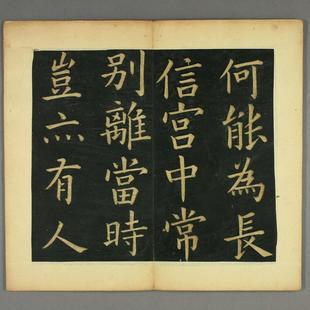 何能為長
信宮中常
别離當時
豈亦有人